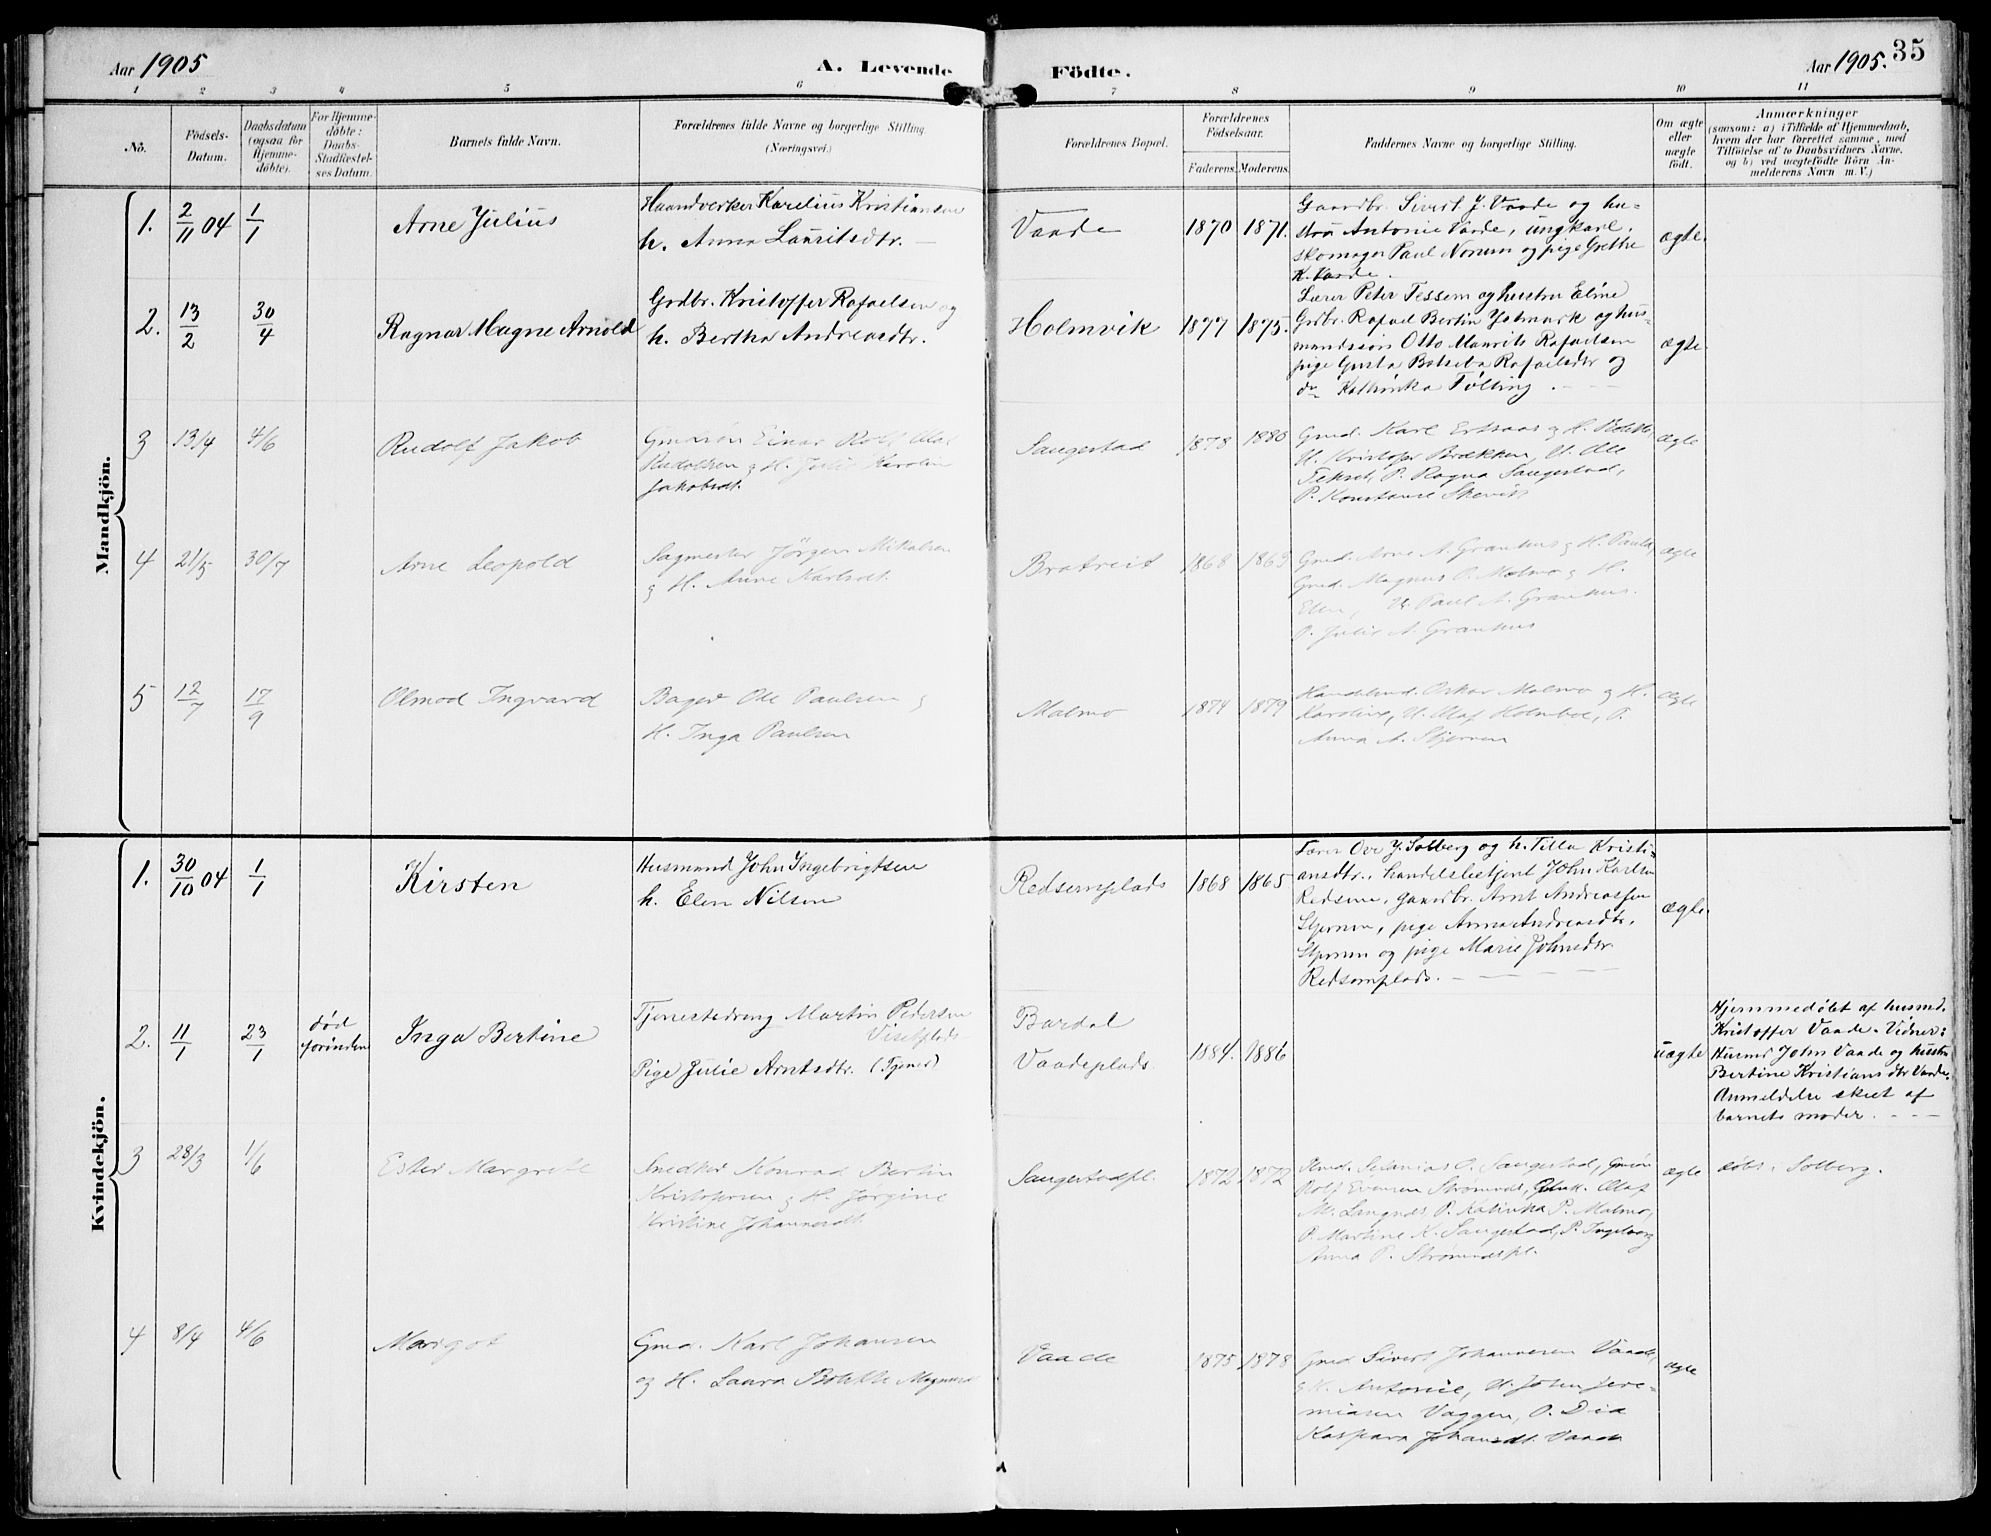 Aar 1905
A. Levende
Födte.
Aar 1905. 35
1 2 3 4 5 6 7 8 9 10 11
No.
Födsels-
Datum.
Daabsdatum
(ogsaa for
Hjemme-
døbte).
For Hjemme-
døbte:
Daabs-
Stadfæstel-
ses Datum.
Barnets fulde Navn.
Forældrenes fulde Navne og borgerlige Stilling.
(Næringsvei.)
Forældrenes Bopæl.
Forældrenes
Födselsaar.
Faderens. Moderens.
Faddernes Navne og borgerlige Stilling.
Om ægte
eller
uægte
födt.
Anmærkninger
(saasom: a) i Tilfælde af Hjemmedaab,
hvem der har forrettet samme, med
Tilföielse af to Daabsvidners Navne,
og b) ved uægtefödte Börn An-
melderens Navn m. V.)
Mandkjön.
1. 2/11 04 1/1
Arne Julius
Haandverker Karelius Kristiansen
h. Anna Lauritsdtr.
Vaade
1870 1871.
Gaardbr. Sivert J. Vaade og hu-
stru Antonie Vaade, ungkarl,
skomager Paul Norum og pige Grethe
K. Vaade.
ægte.
2. 13/2 30/4
Ragnar Magne Arnold
Grdbr. Kristoffer Rafaelsen og
h. Bertha Andreasdtr.
Holmvik
1877 1875.
Lærer Peter Tessem og hustru Eline
Grdbr. Rafael Bertin og hus-
mandssøn Otto Maurits Rafaelsen
pige Gusta Batseba Rafaelsdtr og
do Kathinka Tølling.
ægte
3 13/4 4/6
Rudolf Jakob
Gmdsøn Einar Rolf Olaf
Rudolfsen & H. Julie Karolin
Jakobsdt.
Saugestad
1878 1880
Gmd. Karl & H.
U. Kristofer Brækken, U. Ole
P. Ragna Saugestad,
P. Konstanse
ægte
4 21/5 30/7
Arne Leopold
Sagmester Jörgen Mikalsen
& H. Anne Karlsdt.
Bratreit
1868 1863
Gmd. Arne A. Granhus & H. Paula,
Gmd. Magnus O. Malmo & H.
Elen, U. Paul A. Granhus.
P. Julie A. Granhus
ægte
5 12/7 17/9
Olmod Ingvard
Bager Ole Paulsen &
H. Inga Paulsen
Malmo
1874 1879
Handelsmd. Oskar Malmo & H.
Karoline, U. Olaf Holmboe, P.
Anna A. Stjernen
ægte
Kvindekjön.
1. 30/10 04 1/1
Kirsten
Husmand John Ingebrigtsen
h. Elen Nilsen
Redsemplads
1868 1865
Lærer Ove J. Solberg og h. Tilla Kristi-
ansdtr., handelsbetjent John Karlsen
Redsem, gaardbr. Arnt Andreassen
Stjernen, pige Anna Andreasdtr.
Stjernen og pige Marie Johnsdtr
Redsemplads.
ægte.
2. 11/1 23/1
død
forinden
Inga Bertine
Tjenestedreng Martin Pedersen
Viselplads
Pige Julie Arntsdtr. (Tjener)
Bardal
Vaadeplads.
1884. 1886
uægte
Hjemmedøbt af husmd.
Kristoffer Vaade. Vidner:
Husmd John Vaade og hustru
Bertine Kristiansdtr Vaade.
Anmeldelse skeet af
barnets moder.
3 28/3 1/6
Ester Margrete
Snedker Konrad Bertin
Kristofersen & H. Jørgine
Kristine Johannesdt.
Saugestadpl.
1872 1872
Gmd. O. Saugestad, Gmsøn
Rolf Evensen Olaf
M. Langnes P. Katinka P. Malmo,
P. Martine K. Saugestad, P. Ingeborg
Anna P.
ægte
døbt i Solberg.
4 8/4 4/6
Margot
Gmd. Karl Johansen
og H. Laura Bolette Magnusd
Vaade
1875 1878
Gmd Sivert Johannesen Vaade,
& H. Antonie, U. Johan Jere-
miasen Vaggen, P. Dia
Kaspara Johansdt. Vaade
ægte